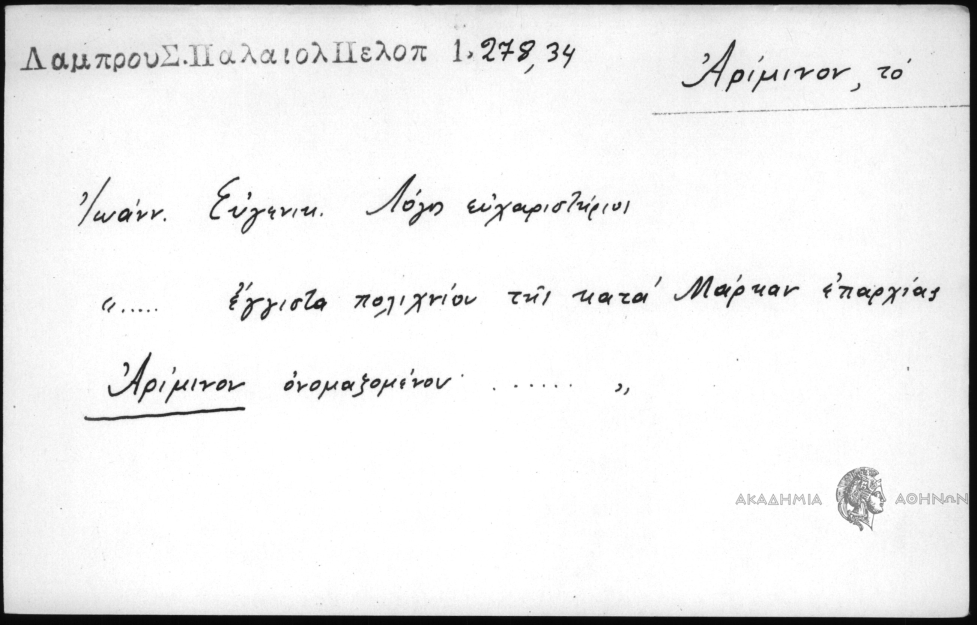 ΛαμπρουΣ.ΠαλαιολΠελοπ 1, 278, 34
Ἀρίμινον, τό
Ἰωάνν. Εὐγενικ. Λόγος εὐχαριστήριος
"..... ἔγγιστα πολιχνίου τῆς κατά Μάρκαν ἐπαρχίας
Ἀρίμινον ὀνομαζομένου ...... "
ΑΚΑΔΗΜΙΑ ΑΘΗΝΩΝ